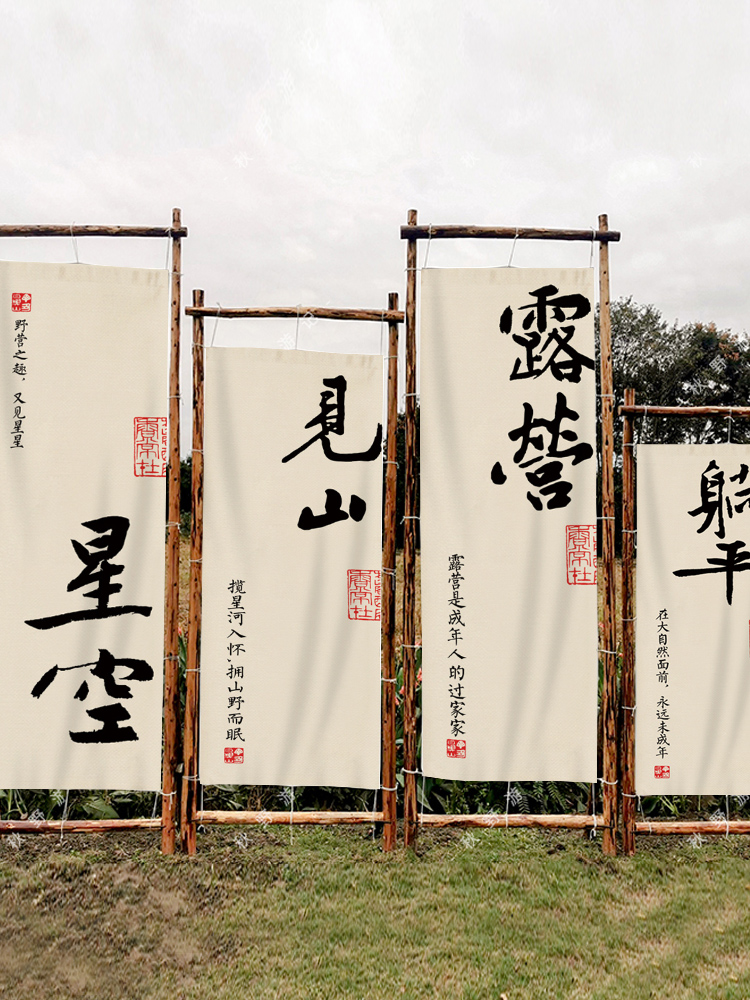 野营之趣，又见星星
星空
见山
揽星河入怀、拥山野而眠
露营
露营是成年人的过家家
躺平
在大自然面前，永远未成年